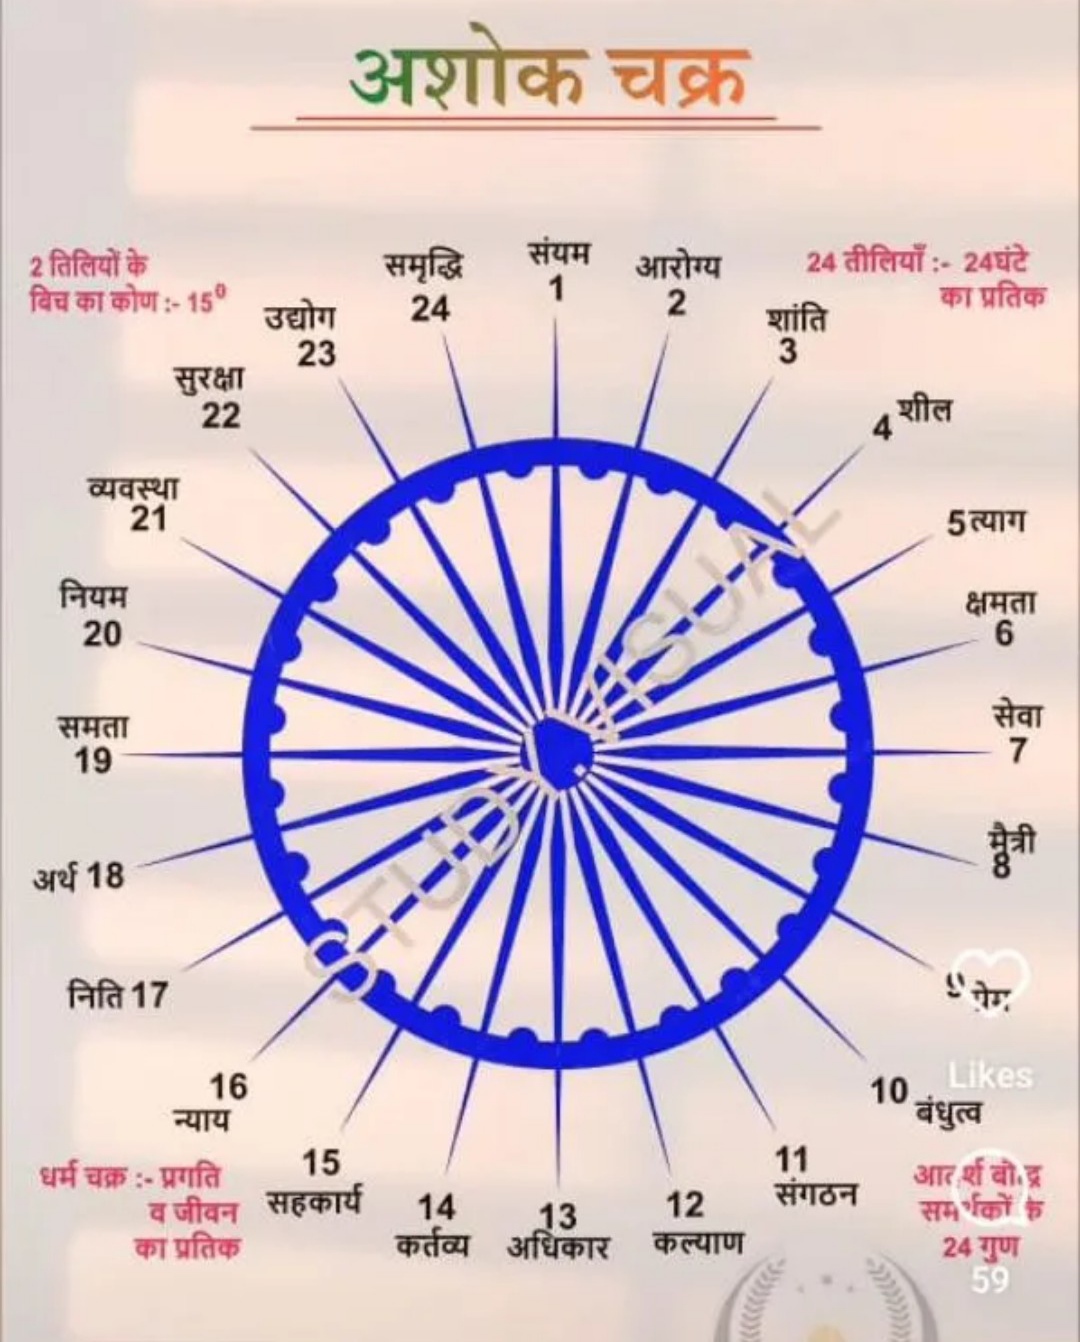 अशोक चक्र
2 तिलियों के
बिच का कोण :- 15⁰
24 तीलियाँ :- 24घंटे
का प्रतिक
संयम
1
आरोग्य
2
शांति
3
4 शील
5 त्याग
क्षमता
6
सेवा
7
मैत्री
8
9
10 बंधुत्व
11
संगठन
12
कल्याण
13
अधिकार
14
कर्तव्य
15
सहकार्य
16
न्याय
निति 17
अर्थ 18
समता
19
नियम
20
व्यवस्था
21
सुरक्षा
22
उद्योग
23
समृद्धि
24
STUDY VISUAL
धर्म चक्र :- प्रगति
व जीवन
का प्रतिक
समर्थकों के
24 गुण
Likes
59